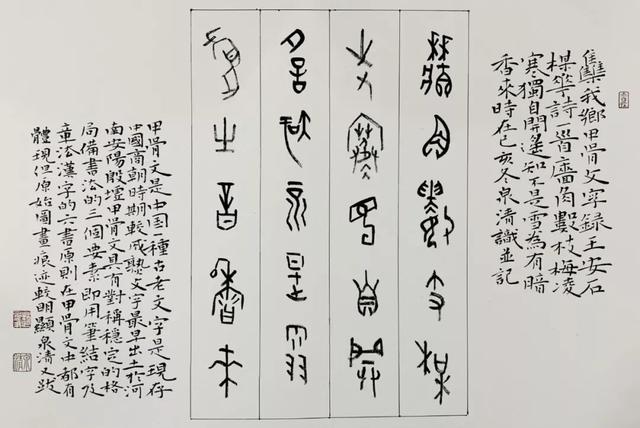 雧我鄉甲骨文字録王安石
楳華詩一首廧角數枝梅凌
寒獨自開遙知不是雪為有暗
香來時在己亥冬泉清識並記
牆角數枝楳
凌寒獨自開
遙知不是雪
為有暗香來
甲骨文是中国一種古老文字是現存
中國商朝時期較成熟文字最早出土於河
南安陽殷墟甲骨文具有對稱穩定的格
局備書法的三個要素即用筆結字及
章法漢字的六書原則在甲骨文中都有
體現但原始圖畫痕迹較明顯泉清又跋